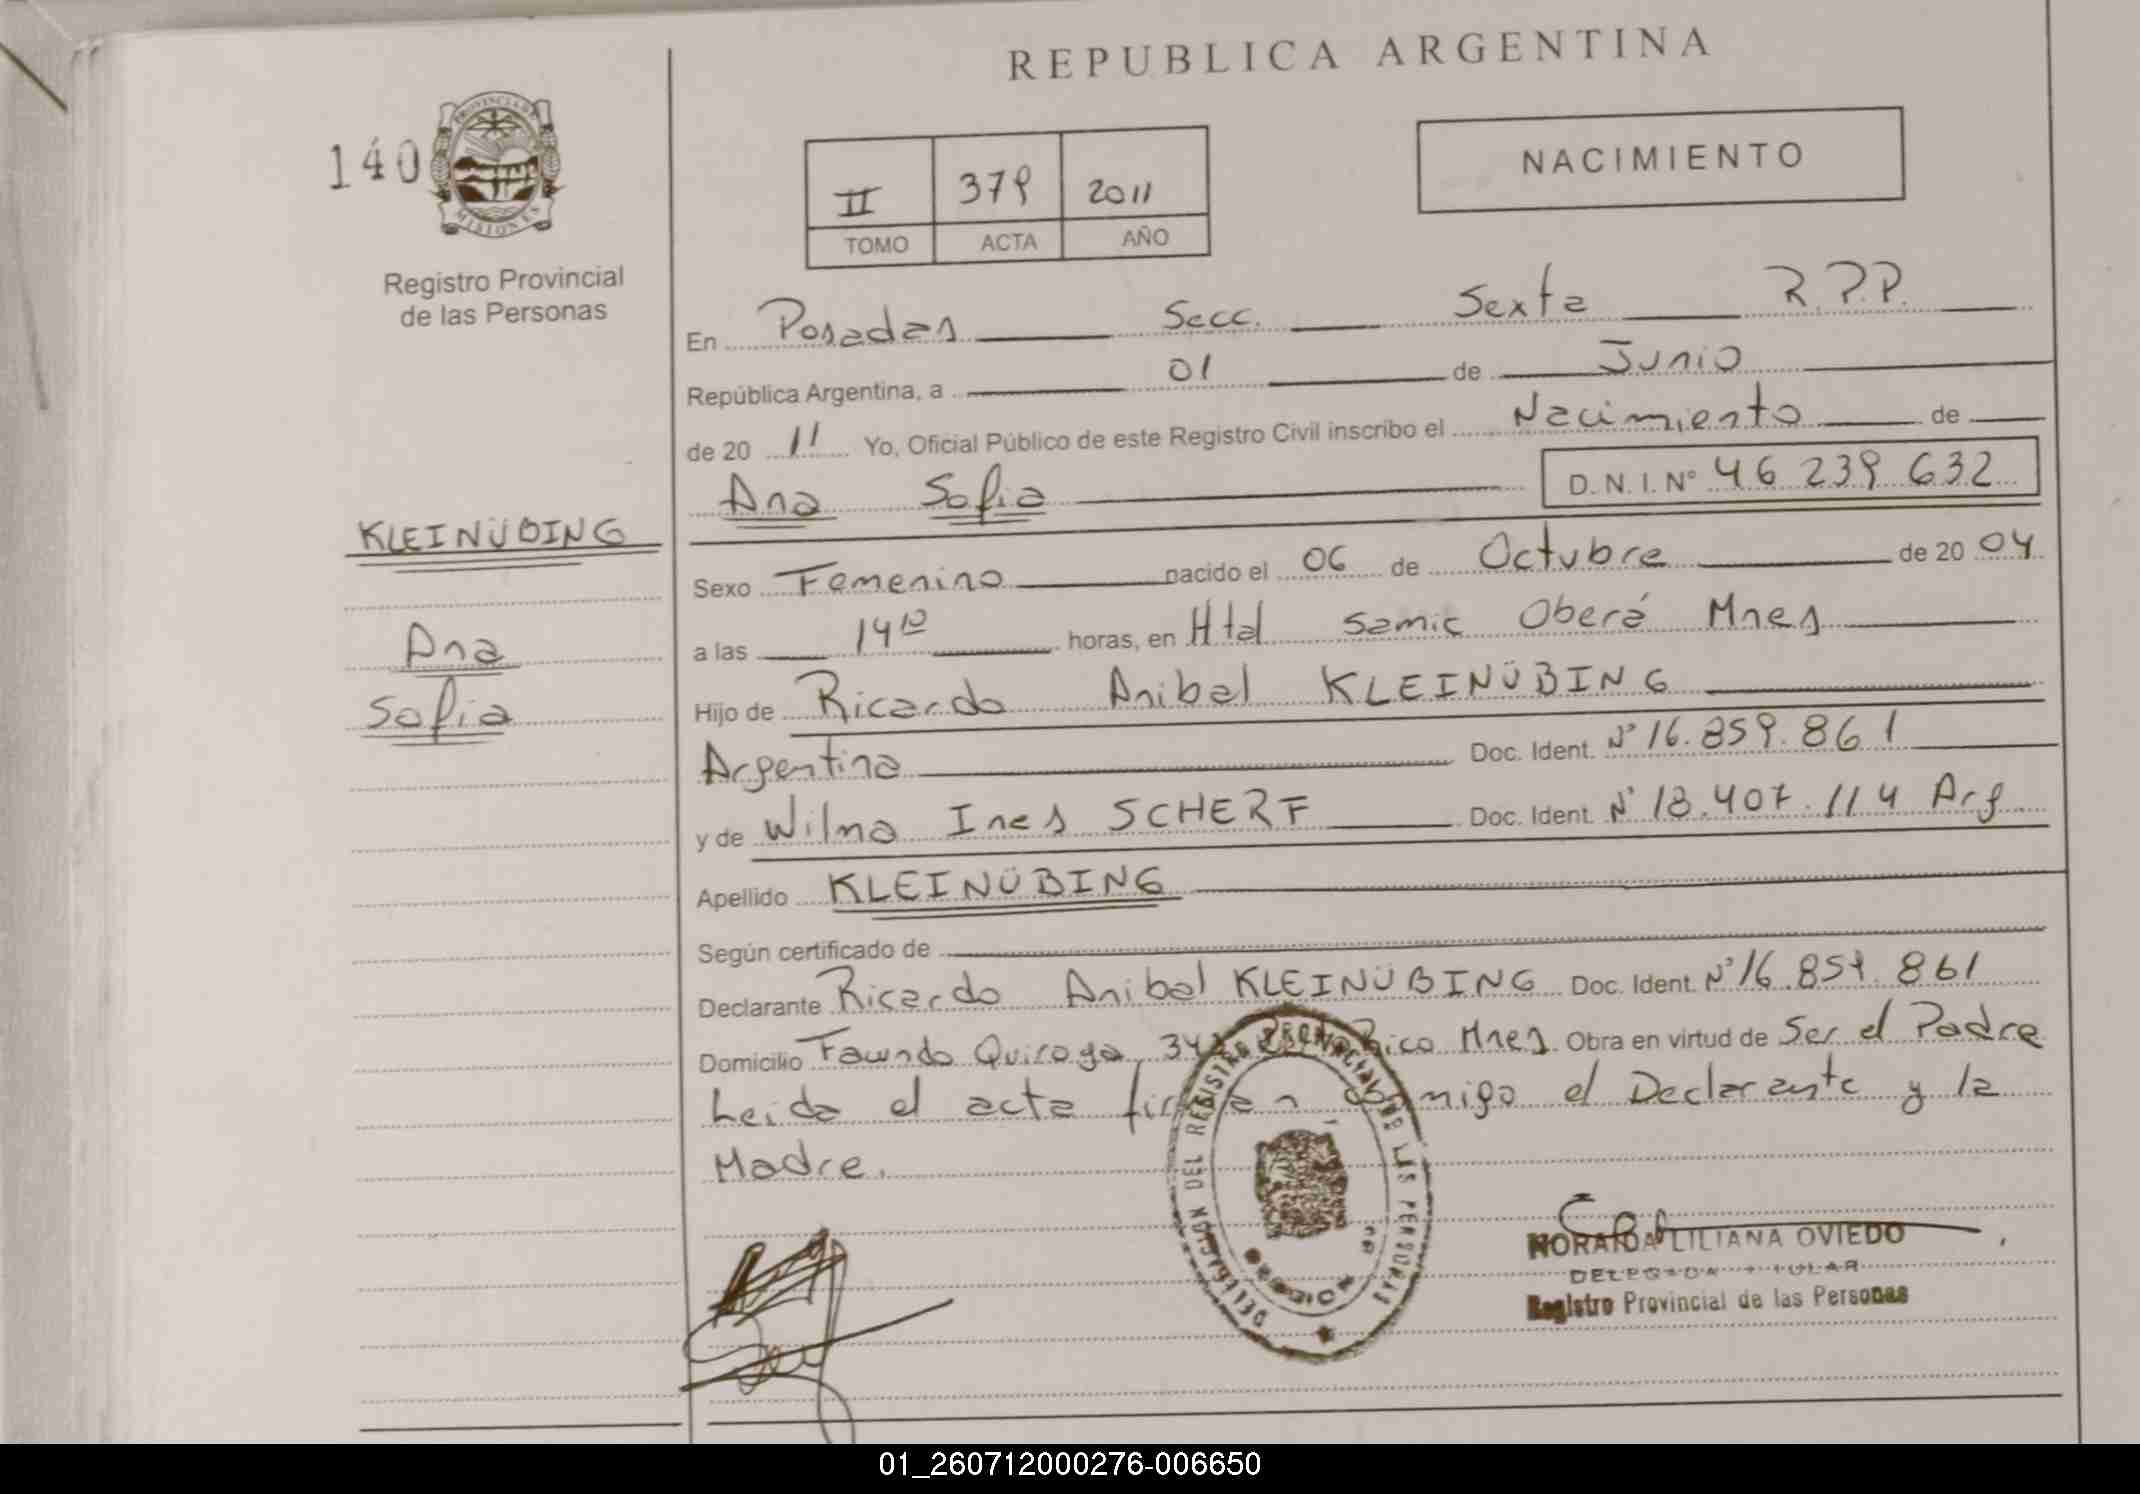 REPUBLICA ARGENTINA
140
PROVINCIA DE
MISIONES
Registro Provincial
de las Personas
II 379 2011
TOMO ACTA AÑO
NACIMIENTO
En Posadas Secc. Sexta R.P.P.
República Argentina, a 01 de Junio
de 20 11 Yo, Oficial Público de este Registro Civil inscribo el Nacimiento de
Ana Sofia D.N.I. Nº 46 239 632
KLEINÜBING
Ana
Sofia
Sexo Femenino nacido el 06 de Octubre de 20 04
a las 14 10 horas, en Htal Samic Oberá Mnes
Hijo de Ricardo Anibal KLEINÜBING
Argentina Doc. Ident. Nº 16.859.861
y de Wilma Ines SCHERF Doc. Ident. Nº 18.407.114 Arg
Apellido KLEINÜBING
Según certificado de
Declarante Ricardo Anibal KLEINÜBING Doc. Ident. Nº 16.859.861
Domicilio Facundo Quiroga Rico Mnes Obra en virtud de Ser el Padre
Leida el acta firman conmigo el Declarante y la
Madre.
DELEGACION DEL REGISTRO PROVINCIAL DE LAS PERSONAS
NORAIDA LILIANA OVIEDO
DELEGADA TITULAR
Registro Provincial de las Personas
01_260712000276-006650